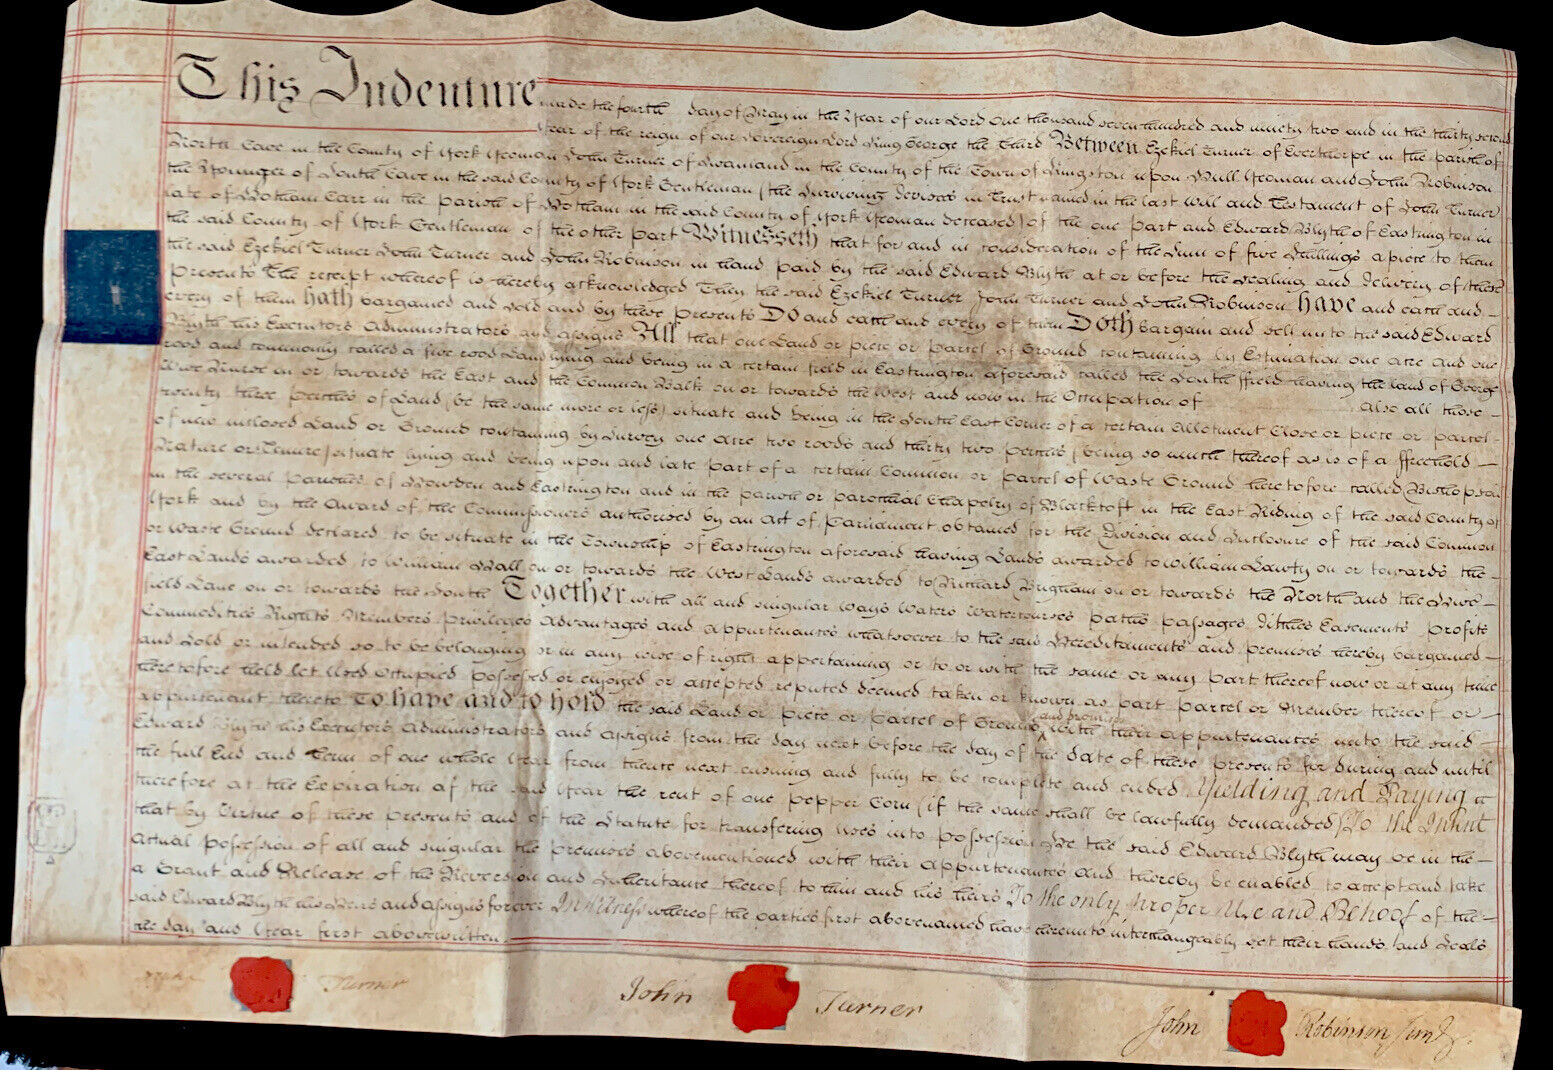 This Indenture made the fourth day of May in the Year of our Lord One thousand seven hundred and ninety two and in the thirty second
Year of the reign of our Sovereign Lord King George the Third Between Ezekiel Turner of Everthorpe in the parish of
North Cave in the County of York Yeoman John Turner of Swanland in the County of the Town of Kingston upon Hull Yeoman and John Robinson
the Younger of South Cave in the said County of York Gentleman (the Surviving Devisees in Trust named in the last Will and Testament of John Turner
late of Hotham Carr in the parish of Hotham in the said County of York Yeoman deceased) of the one part and Edward Blyth of Eastrington in
the said County of York Gentleman of the other part Witnesseth that for and in consideration of the Sum of five Shillings apiece to them
the said Ezekiel Turner John Turner and John Robinson in hand paid by the said Edward Blyth at or before the Sealing and Delivery of these
presents The receipt whereof is hereby acknowledged They the said Ezekiel Turner John Turner and John Robinson have and each and
every of them hath bargained and Sold and by these presents Do and each and every of them Doth bargain and sell unto the said Edward
Blyth his Executors Administrators and assigns All that one Land or piece or parcel of Ground containing by Estimation one acre and one
rood and commonly called a five rood Land lying and being in a certain field in Eastrington aforesaid called the South ffield having the land of George
in or towards the East and the Common Balk on or towards the West and now in the Occupation of Also all those
twenty three perches of Land (be the same more or less) situate and being in the South East Corner of a certain Allotment Close or piece or parcel
of new inclosed Land or Ground containing by Survey one acre two roods and thirty two perches (being so much thereof as is of a ffreehold
Nature or Tenure) situate lying and being upon and late part of a certain Common or parcel of Waste Ground heretofore called Bishopsoil
in the several parishes of Howden and Eastrington and in the parish or parochial Chapelry of Blacktoft in the East Riding of the said County of
York and by the Award of the Commissioners authorised by an Act of Parliament obtained for the Division and Inclosure of the said Common
or Waste Ground declared to be situate in the Township of Eastrington aforesaid having Lands awarded to William Lawty on or towards the
East Lands awarded to William Hall on or towards the West Lands awarded to Richard Brigham on or towards the North and the
field Lane on or towards the South Together with all and singular Ways Waters Watercourses paths passages Easements profits
Commodities Rights Members privileges Advantages and appurtenances whatsoever to the said Hereditaments and premises hereby bargained
and Sold or intended so to be belonging or in any wise of right appertaining or to or with the same or any part thereof now or at any time
heretofore held let Used Occupied possessed or enjoyed or accepted reputed deemed taken or known as part parcel or Member thereof or
appurtenant thereto To have and to hold the said Land or piece or parcel of Ground and premises with their appurtenances unto the said
Edward Blyth his Executors Administrators and assigns from the day next before the day of the date of these presents for during and until
the full End and Term of one whole Year from thence next ensuing and fully to be complete and ended Yielding and Paying
therefore at the Expiration of the said Year the rent of one pepper Corn (if the same shall be lawfully demanded) To the Intent
that by Virtue of these presents and of the Statute for transfering Uses into possession He the said Edward Blyth may be in the
actual possession of all and singular the premises abovementioned with their appurtenances and thereby be enabled to accept and take
a Grant and Release of the Reversion and Inheritance thereof to him and his heirs To the only proper Use and Behoof of the
said Edward Blyth his Heirs and assigns for ever In Witness whereof the parties first abovenamed have hereunto interchangeably set their hands and Seals
the day and Year first abovewritten.
Turner John Turner John Robinson Junr.